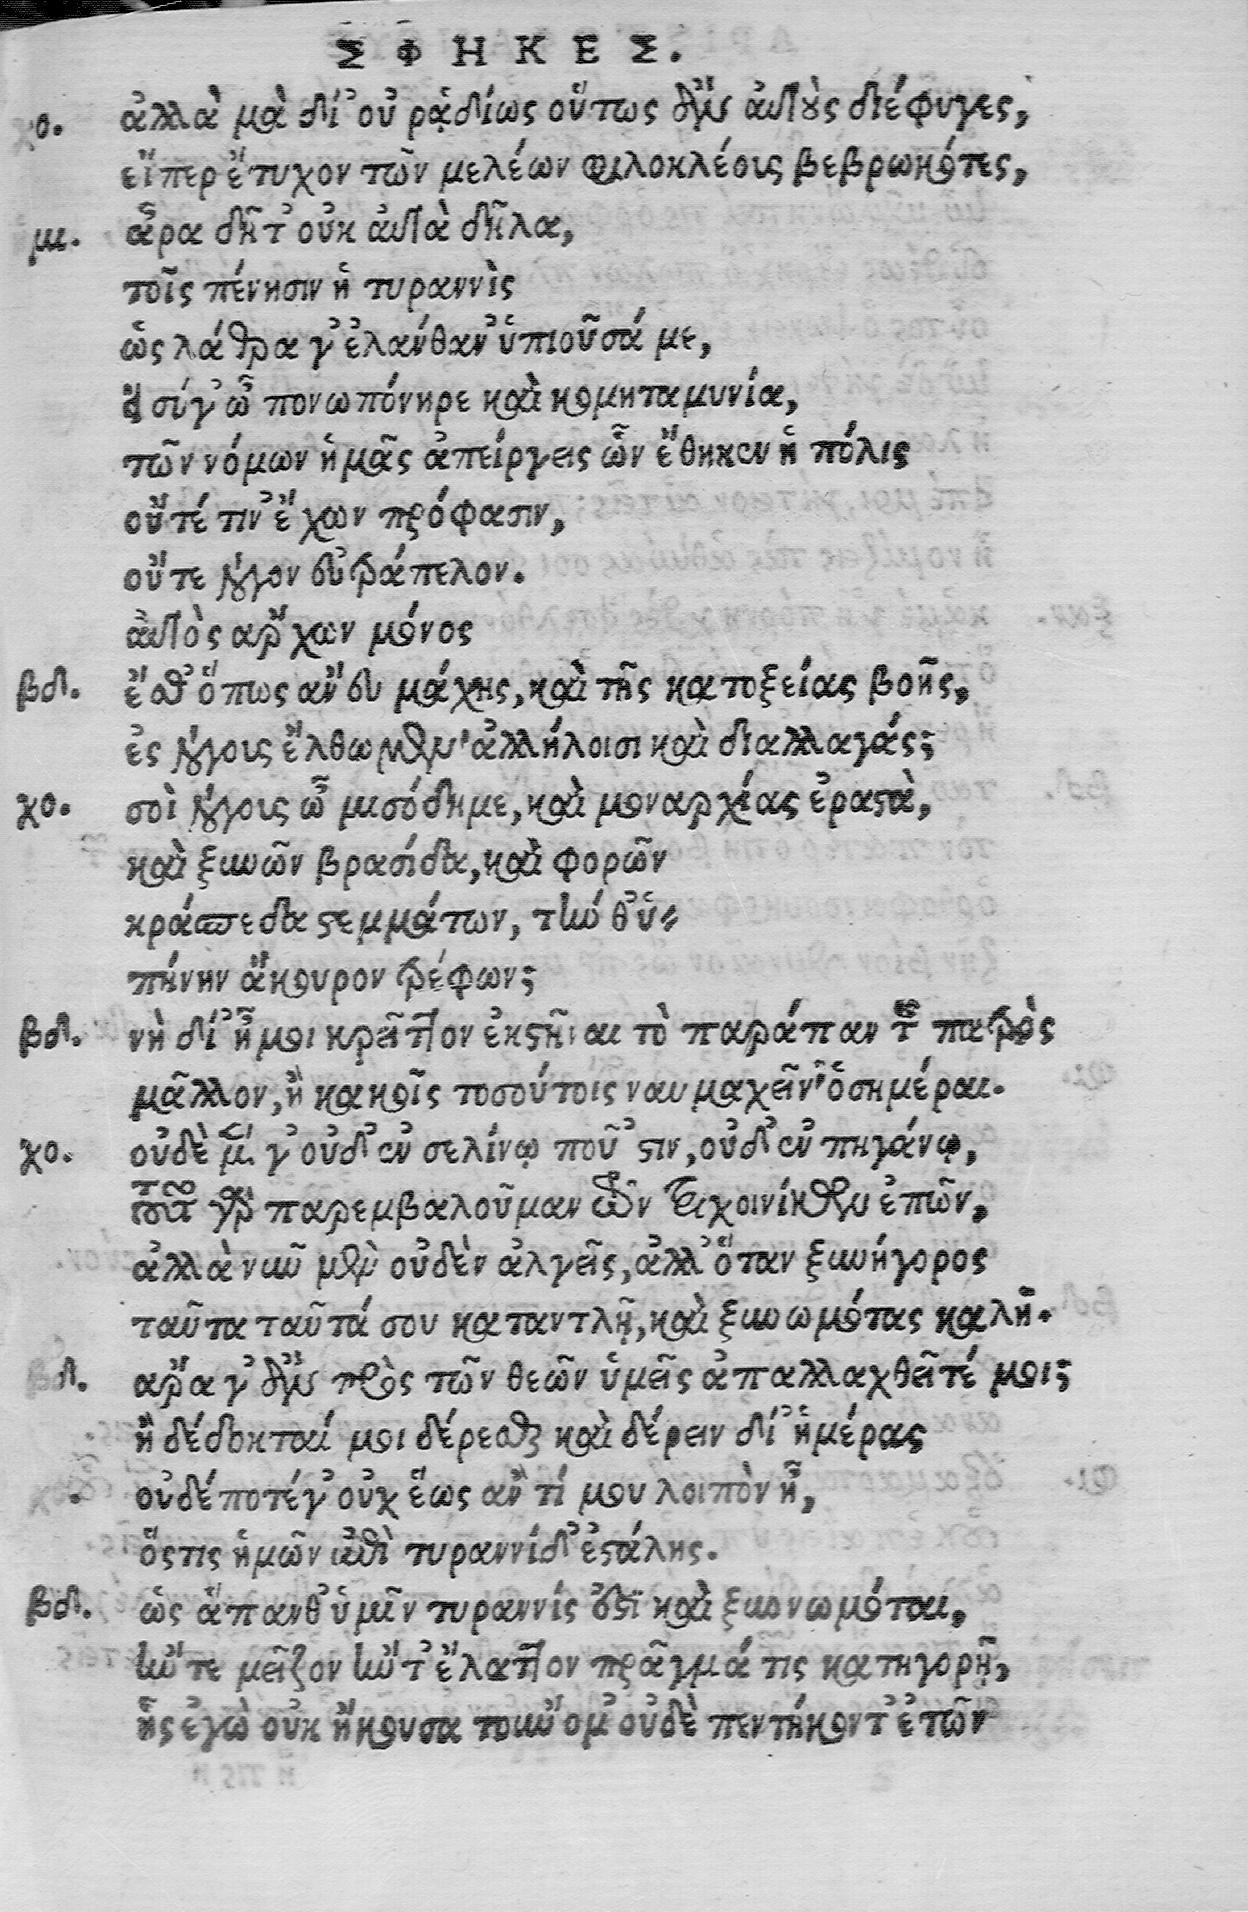 ΣΦΗΚΕΣ.
χο. ἀλλὰ μὰ δί' οὐ ῥᾳδίως οὕτως ἂν αὐτοὺς διέφυγες,
εἴπερ ἔτυχον τῶν μελέων φιλοκλέοις βεβρωκότες,
ἆρα δῆτ' οὐκ αὐτὰ δῆλα,
τοῖς πένησιν ἡ τυραννὶς
ὡς λάθρα γ' ἐλάνθαν' ὑπιοῦσά με,
σύ γ' ὦ πονωπόνηρε καὶ κομηταμυνία,
τῶν νόμων ἡμᾶς ἀπείργεις ὧν ἔθηκεν ἡ πόλις
οὔτέ τιν' ἔχων πρόφασιν,
οὔτε λόγον εὐτράπελον.
αὐτὸς ἄρχων μόνος
βδ. ἔσθ' ὅπως ἂν εὐ μάχης, καὶ τῆς κατοξείας βοῆς,
ἐς λόγους ἔλθωμεν ἀλλήλοισι καὶ διαλλαγάς;
χο. σοὶ λόγοις ὦ μισόδημε, καὶ μοναρχίας ἐραστὰ,
καὶ ξυνῶν βρασίδα, καὶ φορῶν
κράσπεδα στεμμάτων, τήν θ' ὑ-
πήνην ἄκουρον τρέφων;
βδ. νὴ δί' ἦ μοι κρεῖττον ἐκστῆναι τὸ παράπαν τοῦ πατρὸς
μᾶλλον, ἢ κακοῖς τοσούτοις ναυμαχεῖν ὁσημέραι.
χο. οὐδὲ μέν γ' οὐδ' ἐν σελίνῳ ποῦ 'στιν, οὐδ' ἐν πηγάνῳ,
τοῦτο γὰρ παρεμβαλοῦμεν τῶν τριχοινίκων ἐπῶν,
ἀλλὰ νῦν μὲν οὐδὲν ἀλγεῖς, ἀλλ' ὅταν ξυνήγορος
ταῦτα ταῦτά σου καταντλῇ, καὶ ξυνωμότας καλῇ.
βδ. ἆρα γ' ἂν πρὸς τῶν θεῶν ὑμεῖς ἀπαλλαχθεῖτέ μοι;
ἢ δέδοκταί μοι δέρεσθαι καὶ δέρειν δι' ἡμέρας
οὐδέποτέ γ' οὐχ ἕως ἄν τί μου λοιπὸν ᾖ,
ὅςτις ἡμῶν ἐπὶ τυραννίδ' ἐστάλης.
βδ. ὡς ἅπανθ' ὑμῖν τυραννίς ἐστὶ καὶ ξυνωμόται,
ἤν τε μεῖζον ἤν τ' ἔλαττον πρᾶγμά τις κατηγορῇ,
ἧς ἐγὼ οὐκ ἤκουσα τοὔνομ' οὐδὲ πεντήκοντ' ἐτῶν